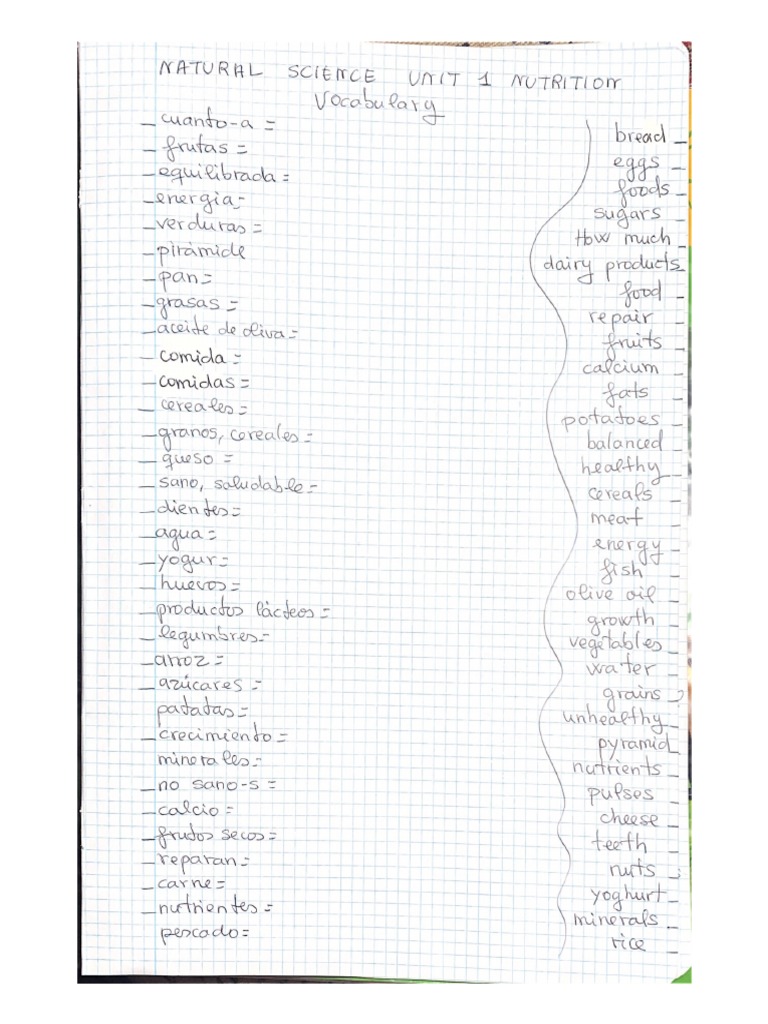 NATURAL SCIENCE UNIT 1 NUTRITION
Vocabulary
_ cuanto-a =
_ frutas =
_ equilibrada =
_ energia =
_ verduras =
_ pirámide
_ pan =
_ grasas =
_ aceite de oliva =
_ comida =
_ comidas =
_ cereales =
_ granos, cereales =
_ queso =
_ sano, saludable =
_ dientes =
_ agua =
_ yogur =
_ huevos =
_ productos lácteos =
_ legumbres =
_ arroz =
_ azúcares =
patatas =
_ crecimiento =
minerales =
_ no sano-s =
_ calcio =
_ frutos secos =
_ reparan =
_ carne =
_ nutrientes =
pescado =
bread _
eggs _
foods _
sugars _
How much _
dairy products _
food _
repair _
fruits _
calcium _
fats _
potatoes _
balanced _
healthy _
cereals _
meat _
energy _
fish _
olive oil _
growth _
vegetables _
water _
grains _
unhealthy _
pyramid _
nutrients _
pulses _
cheese _
teeth _
nuts _
yoghurt _
minerals _
rice _